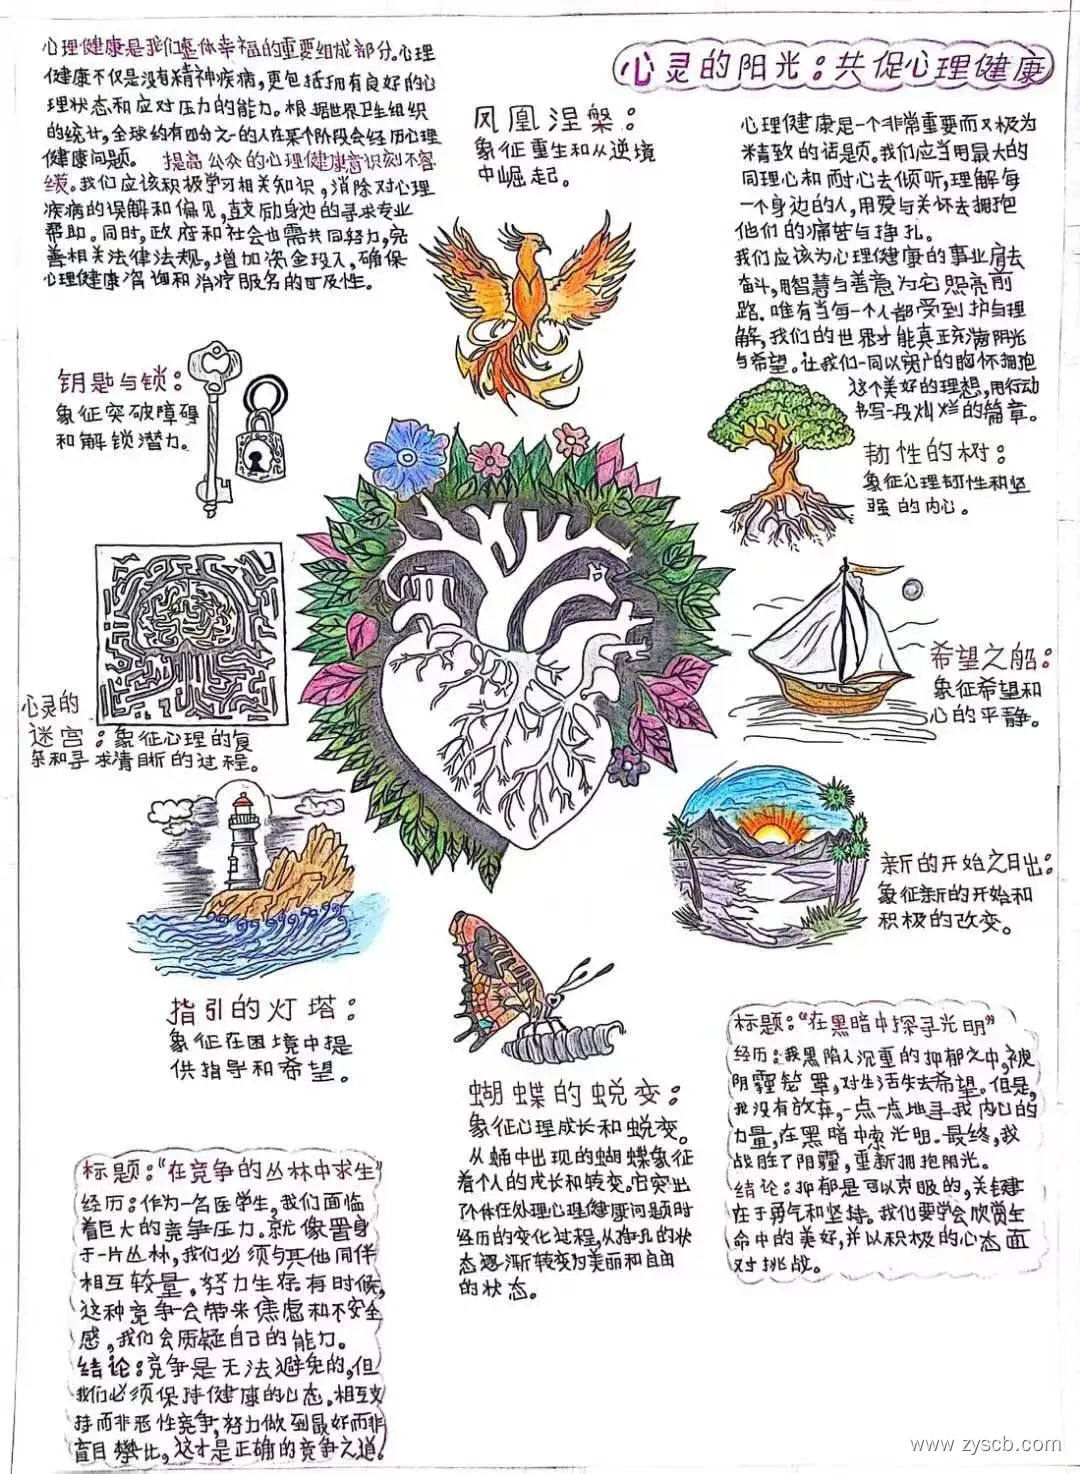 心灵的阳光：共促心理健康
心理健康是我们整体幸福的重要组成部分。心理
健康不仅是没有精神疾病，更包括拥有良好的心
理状态和应对压力的能力。根据世界卫生组织
的统计，全球约有四分之一的人在某个阶段会经历心理
健康问题。 提高公众的心理健康意识刻不容
缓。我们应该积极学习相关知识，消除对心理
疾病的误解和偏见，鼓励身边的寻求专业
帮助。同时，政府和社会也需共同努力，完
善相关法律法规，增加资金投入，确保
心理健康咨询和治疗服务的可及性。
凤凰涅槃：
象征重生和从逆境
中崛起。
心理健康是一个非常重要而又极为
精致的话题。我们应当用最大的
同理心和耐心去倾听，理解每
一个身边的人，用爱与关怀去拥抱
他们的痛苦与挣扎。
我们应该为心理健康的事业肩去
奋斗，用智慧与善意为它照亮前
路。唯有当每一个人都受到护与理
解，我们的世界才能真正充满阳光
与希望。让我们一同以宽广的胸怀拥抱
这个美好的理想，用行动
书写一段灿烂的篇章。
钥匙与锁：
象征突破障碍
和解锁潜力。
韧性的树：
象征心理韧性和坚
强的内心。
心灵的
迷宫：象征心理的复
杂和寻求清晰的过程。
希望之船：
象征希望和
心的平静。
新的开始之日出：
象征新的开始和
积极的改变。
指引的灯塔：
象征在困境中提
供指导和希望。
蝴蝶的蜕变：
象征心理成长和蜕变。
从蛹中出现的蝴蝶象征
着个人的成长和转变。它突出
了个体在处理心理健康问题时
经历的变化过程，从挣扎的状
态逐渐转变为美丽和自由
的状态。
标题："在黑暗中探寻光明"
经历：我黑陷入沉重的抑郁之中，被
阴霾笼罩，对生活失去希望。但是，
我没有放弃，一点一点地寻找内心的
力量，在黑暗中索光明。最终，我
战胜了阴霾，重新拥抱阳光。
结论：抑郁是可以克服的，关键
在于勇气和坚持。我们要学会欣赏生
命中的美好，并以积极的心态面
对挑战。
标题："在竞争的丛林中求生"
经历：作为一名医学生，我们面临
着巨大的竞争压力。就像置身
于一片丛林，我们必须与其他同伴
相互较量，努力生存有时候，
这种竞争会带来焦虑和不安全
感，我们会质疑自己的能力。
结论：竞争是无法避免的，但
我们必须保持健康的心态。相互支
持而非恶性竞争，努力做到最好而非
盲目攀比，这才是正确的竞争之道。
www.zyscb.com